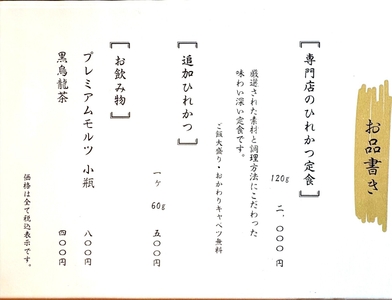 お品書き
【専門店のひれかつ定食】
120g 二、〇〇〇円
厳選された素材と調理方法にこだわった
味わい深い定食です。
ご飯大盛り・おかわりキャベツ無料
【追加ひれかつ】
一ヶ 60g 五〇〇円
【お飲み物】
プレミアムモルツ 小瓶 八〇〇円
黒烏龍茶 四〇〇円
価格は全て税込表示です。